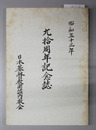 昭和五十三年
九拾周年記念誌
日本基督教団福内教会